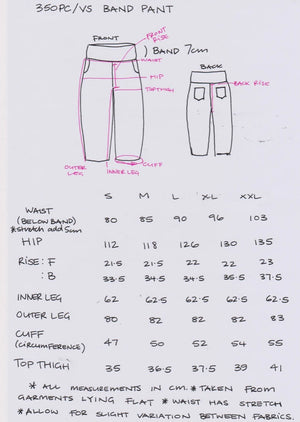 350PC/VS BAND PANT
FRONT
FRONT RISE
) BAND 7cm
WAIST
BACK
HIP
TOPTHIGH
BACK RISE
OUTER LEG
INNER LEG
CUFF
S M L XL XXL
WAIST 80 85 90 96 103
(BELOW BAND)
*stretch add 5cm
HIP 112 118 126 130 135
RISE: F 21.5 21.5 22 22 23
: B 33.5 34.5 34.5 35.5 37.5
INNER LEG 62 62.5 62.5 62.5 62.5
OUTER LEG 80 82 82 82 83
CUFF 47 50 52 54 55
(CIRCUMFERENCE)
TOP THIGH 35 36.5 37.5 39 41
* ALL MEASUREMENTS IN CM. * TAKEN FROM
GARMENTS LYING FLAT * WAIST HAS STRETCH
* ALLOW FOR SLIGHT VARIATION BETWEEN FABRICS.